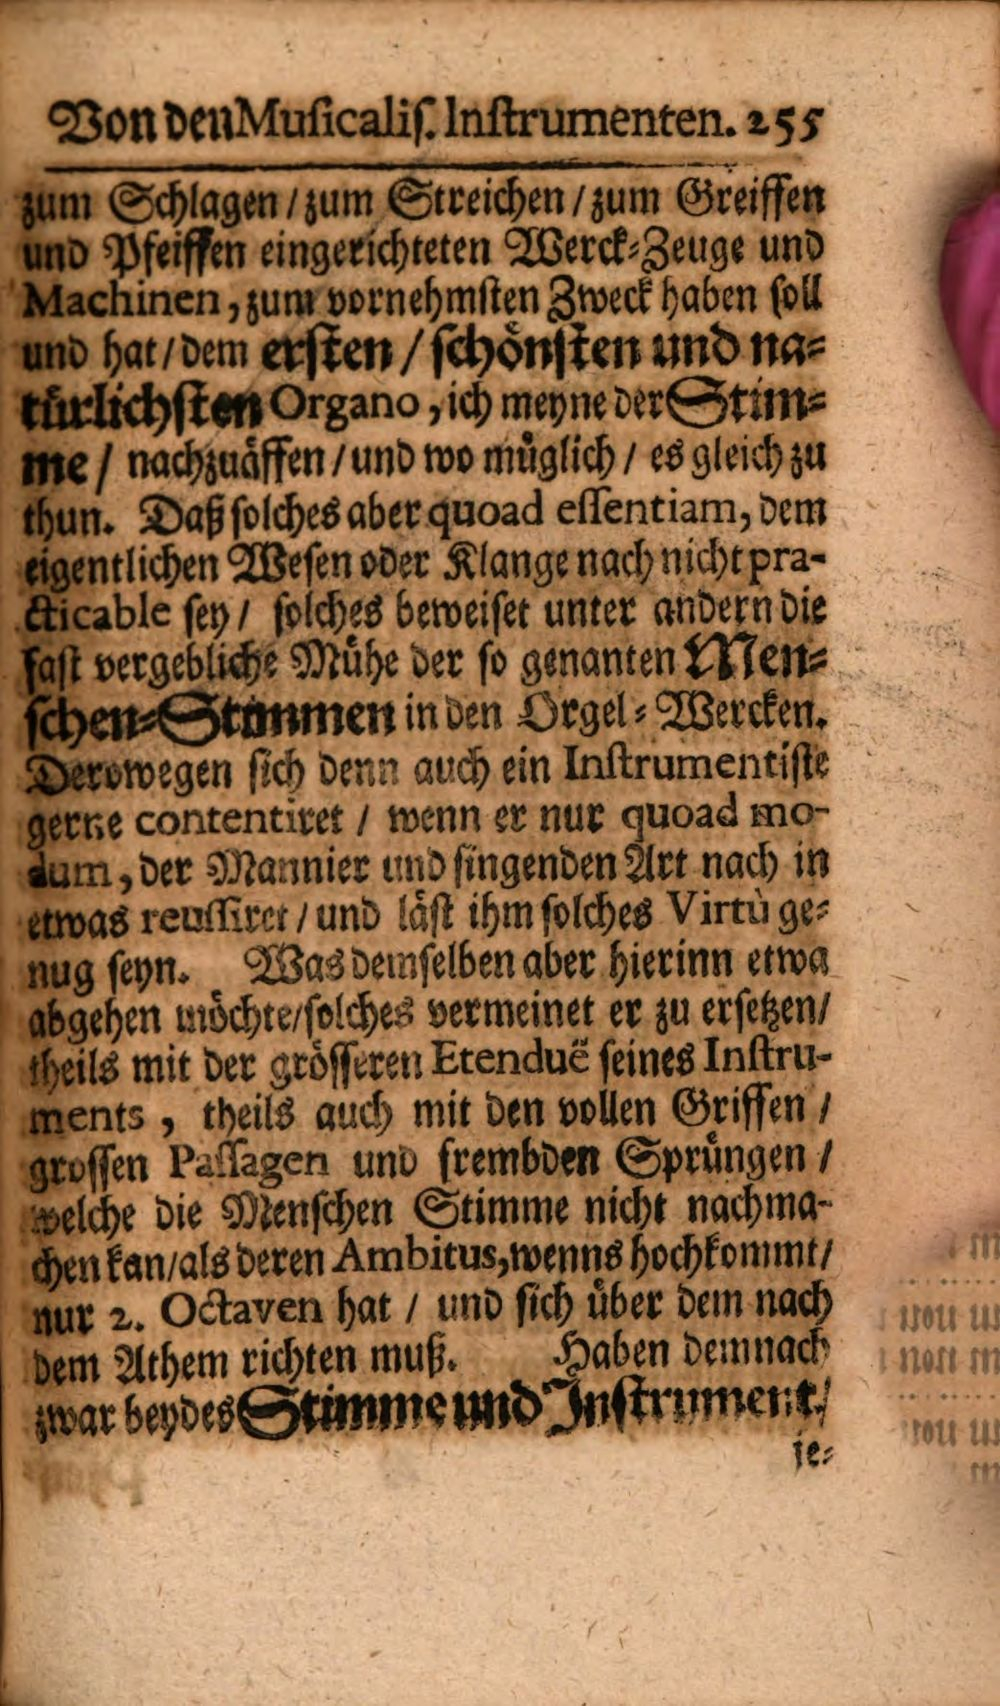 Von den Musicalis. Instrumenten. 255
zum Schlagen / zum Streichen / zum Greiffen
und Pfeiffen eingerichteten Werck-Zeuge und
Machinen, zum vornehmsten Zweck haben soll
und hat / dem ersten / schönsten und na-
türlichsten Organo, ich meyne der Stim-
me / nachzuäffen / und wo müglich / es gleich zu
thun. Daß solches aber quoad essentiam, dem
eigentlichen Wesen oder Klange nach nicht pra-
cticable sey / solches beweiset unter andern die
fast vergebliche Mühe der so genanten Men-
schen-Stimmen in den Orgel-Wercken.
Derowegen sich denn auch ein Instrumentiste
gerne contentiret / wenn er nur quoad mo-
dum, der Mannier und singenden Art nach in
etwas reussiret / und läst ihm solches Virtù ge-
nug seyn. Was demselben aber hierinn etwa
abgehen möchte / solches vermeinet er zu ersetzen /
theils mit der grösseren Etenduë seines Instru-
ments, theils auch mit den vollen Griffen /
grossen Passagen und frembden Sprüngen /
welche die Menschen Stimme nicht nachma-
chen kan / als deren Ambitus, wenns hoch kommt /
nur 2. Octaven hat / und sich über dem nach
dem Athem richten muß. Haben demnach
zwar beydes Stimme und Instrument /
je-